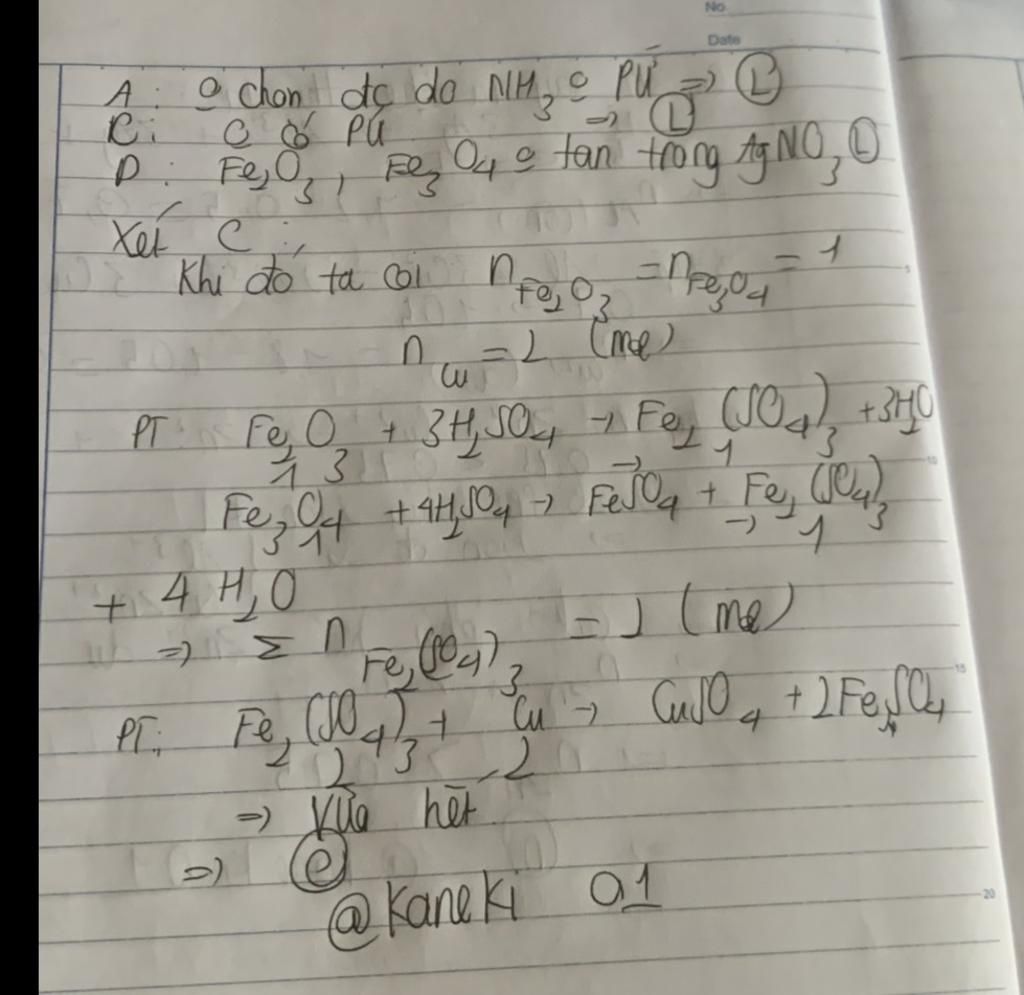 No
Date
A: o chọn đc do NH3 o PƯ => Ⓛ
C: C có PƯ => Ⓛ
D: Fe2O3, Fe3O4 o tan trong AgNO3 Ⓛ
Xét C:
Khi đó ta có: nFe2O3 = nFe3O4 = 1
nCu = 2 (mol)
PT: Fe2O3 + 3H2SO4 → Fe2(SO4)3 + 3H2O
1 → 1
Fe3O4 + 4H2SO4 → FeSO4 + Fe2(SO4)3
1 → 1
+ 4 H2O
=> Σ nFe2(SO4)3 = 2 (mol)
PT: Fe2(SO4)3 + Cu → CuSO4 + 2FeSO4
2 2
=> Vừa hết
=> Ⓒ
@Kaneki 01
10
15
20